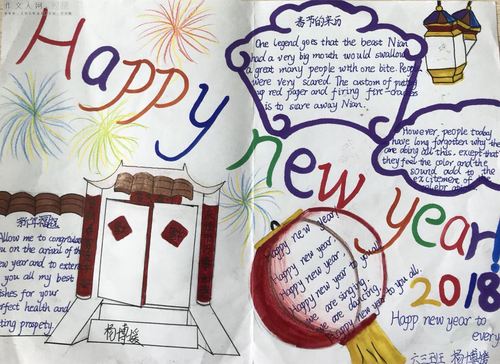 作文人网
Happy
new year!
2018
春节的来历
One legend goes that the beast Nian
had a very big mouth would swallow
a great many people with one bite. Peop
were very scared. The custom of putting
up red paper and firing fire-crackers
is to scare away Nian.
However people today
have long forgotten why the
are doing all this. except that
they feel the color and the
sound add to the
excitement of the
新年祝福
Allow me to congratulate
you on the arrival of the
new year and to extend
you all my best
shes for your
erfect health and
ting prospety.
杨博媛
Happy new year!
Happy new year,
Happy new year,
Happy new year to you all!
we are singing,
we are dancing,
Happy new year to you all.
Happ new year to
every
六三班 杨博媛